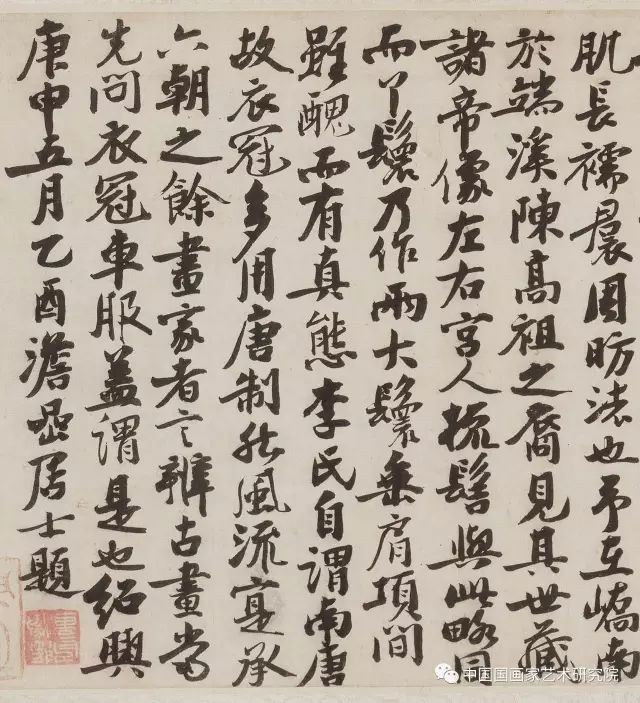 肌長襦晨固昉法也予在嶠南
於端溪陳高祖之裔見其世藏
諸帝像左右宫人梳髻與此略同
而丫鬟乃作兩大鬟垂肩項間
雖醜而有真態李氏自謂南唐
故衣冠多用唐制然風流寔承
六朝之餘畫家者言辨古畫當
先問衣冠車服蓋謂是也紹興
庚申五月乙酉澹喦居士題
中国国画家艺术研究院